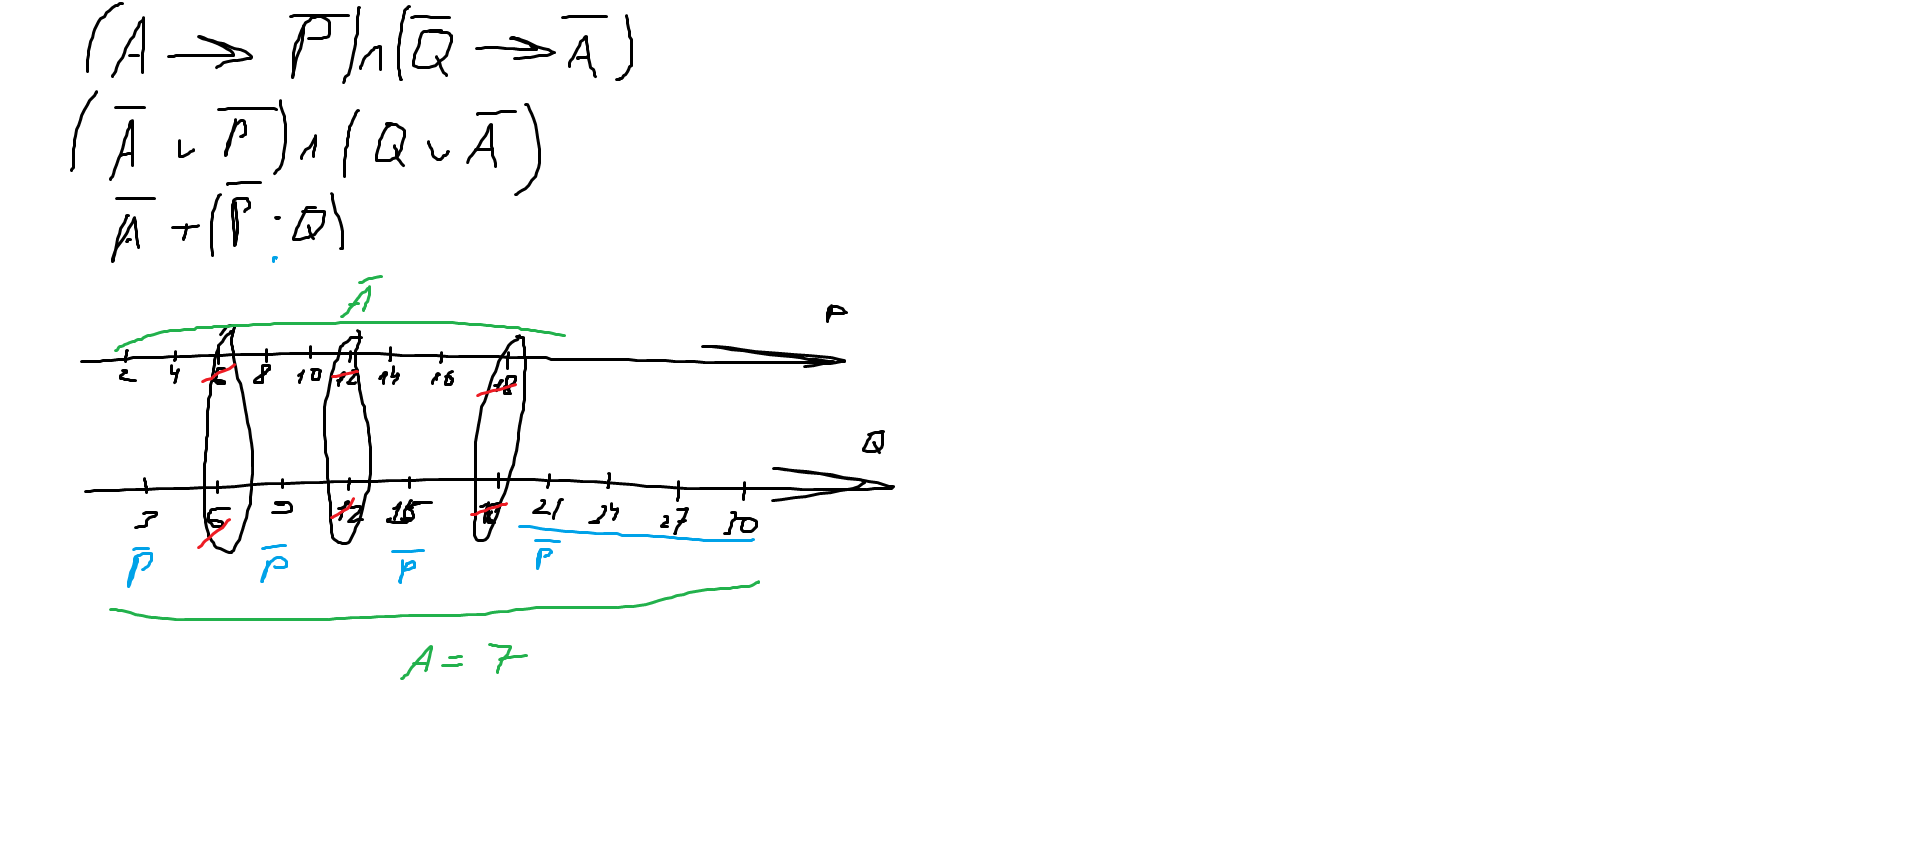 (A → P̅) ∧ (Q̅ → A̅)
(A̅ ∨ P̅) ∧ (Q ∨ A̅)
A̅ + (P̅ · Q)
A̅
P
2 4 6 8 10 12 14 16 18
Q
3 6 9 12 15 18 21 24 27 30
P̅ P̅ P̅ P̅
A = 7